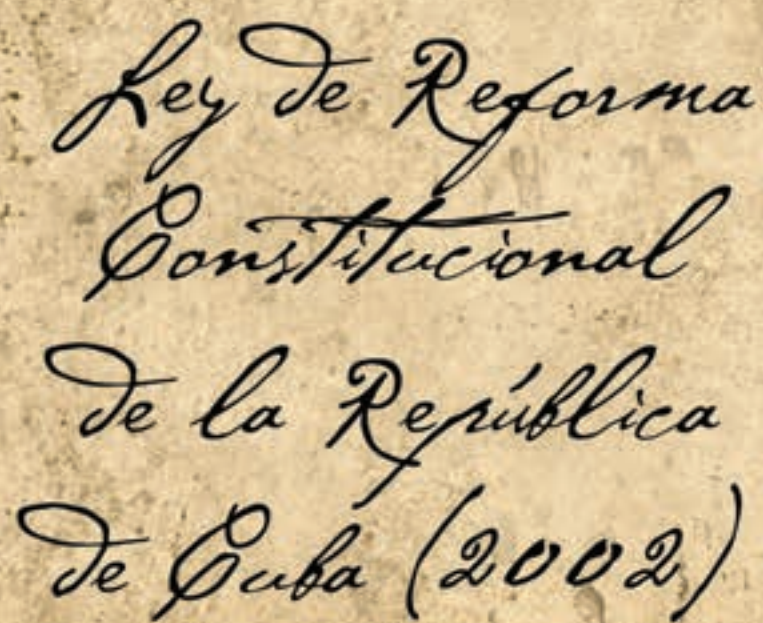 Ley de Reforma
Constitucional
de la República
de Cuba (2002)